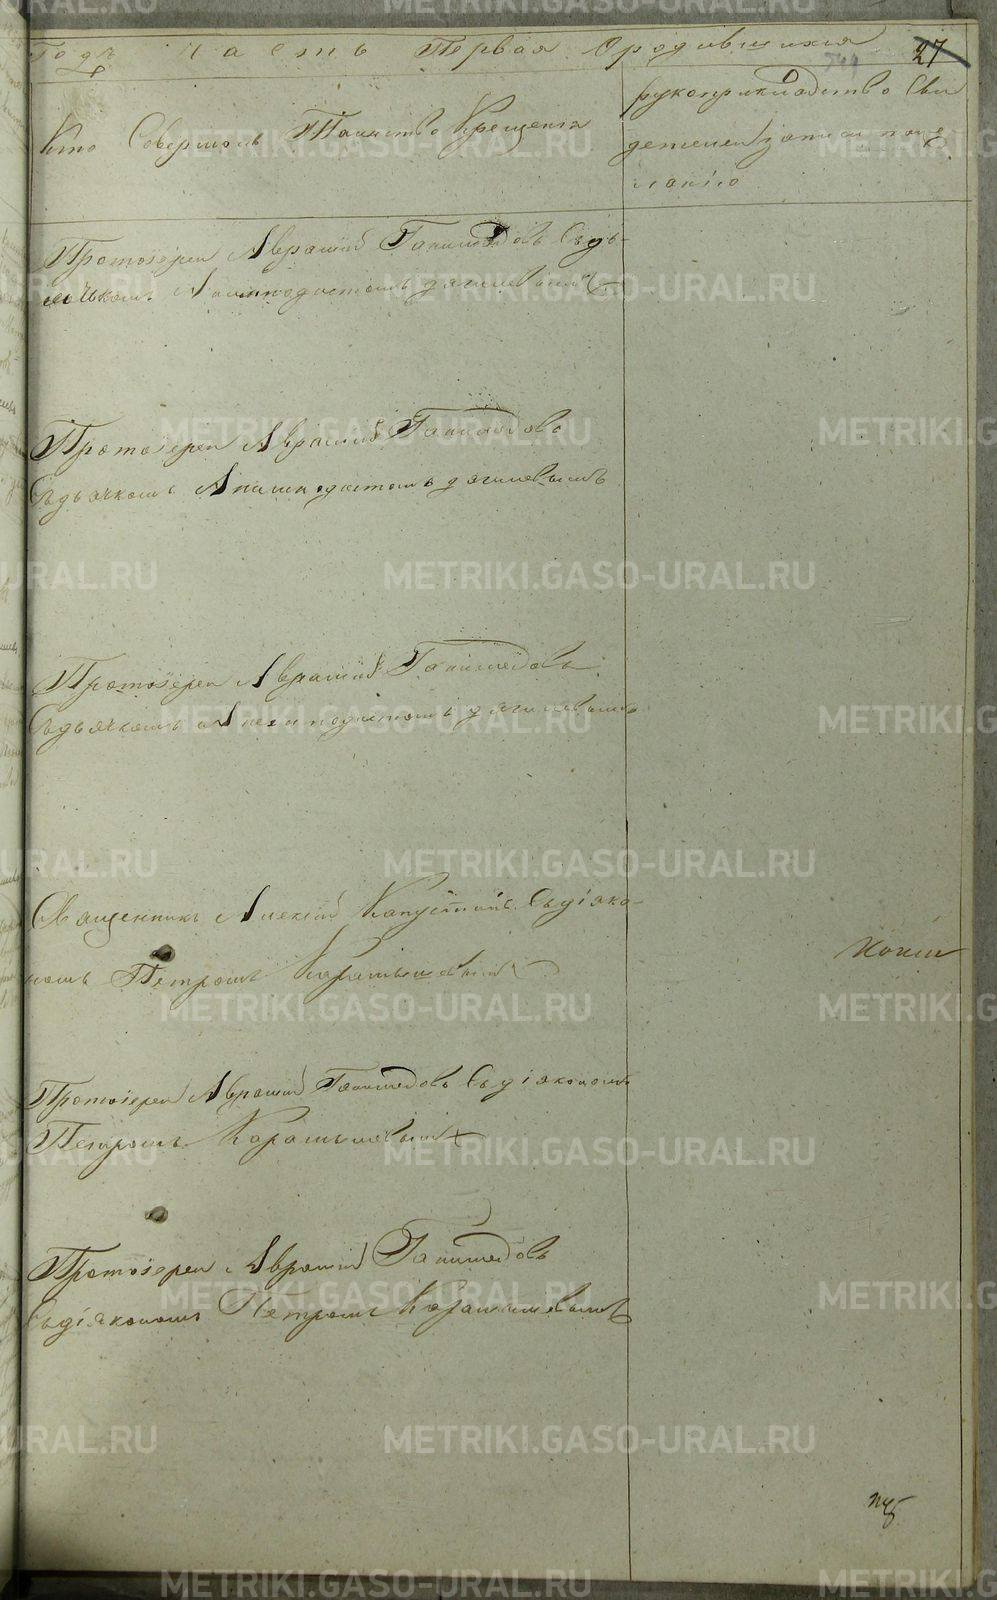 Годъ Часть Первая О родившихся 27
Кто Совершалъ Таинство Крещенія
рукоприкладство Сви
детелей записи по же
ланію
Протоіерей Аврамій Ганимедовъ Съ дъ-
ячькомъ Ампподистомъ Дягилевымъ
Протоіерей Аврамій Ганимедовъ
Съ дьячкомъ Анимподистомъ Дягилевымъ
Протоіерей Аврамій Ганимедовъ
Съ дьячкомъ Анимподистомъ Дягилевымъ
Священникъ Алексій Капустинъ Съ діако-
номъ Петромъ Карамышевымъ
Протоіерей Аврамій Ганимедовъ Съ діакономъ
Петромъ Карамышевымъ
Протоіерей Аврамій Ганимедовъ
Съ діакономъ Петромъ Карамышевымъ
METRIKI.GASO-URAL.RU